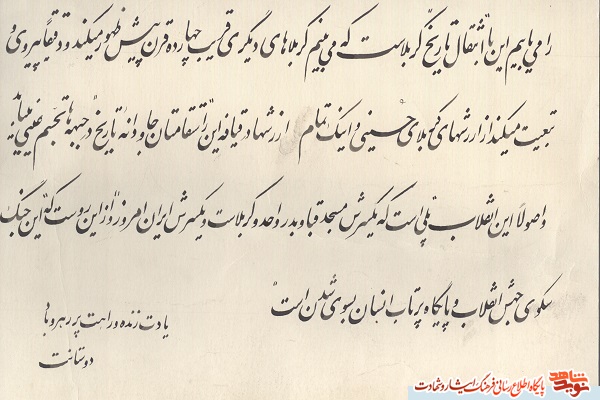 را می‌یابیم این با "انتقال تاریخ" کربلاست که می‌بینیم کربلاهای دیگری قریب چهارده قرن پیش ظهور میکند و دقیقاً پیروی و
تبعیت میکند از ارزشهای کربلای حسینی و اینک تمام ارزشها در قیافه این "استقامتهای جاودانه تاریخ" در جبهه ها تجسم عینی مییابد
و اصولاً این انقلاب "پلی است که یکسرش مسجد قبا و بدر و احد و کربلاست و یکسرش ایران امروز" از این روست که "این جنگ
سکوی جهش انقلاب و پایگاه پرتاب انسان بسوی شدن است"
یادت زنده و راهت پر رهرو باد
دوستانت
نوید شاهد
پایگاه اطلاع رسانی فرهنگ ایثار و شهادت